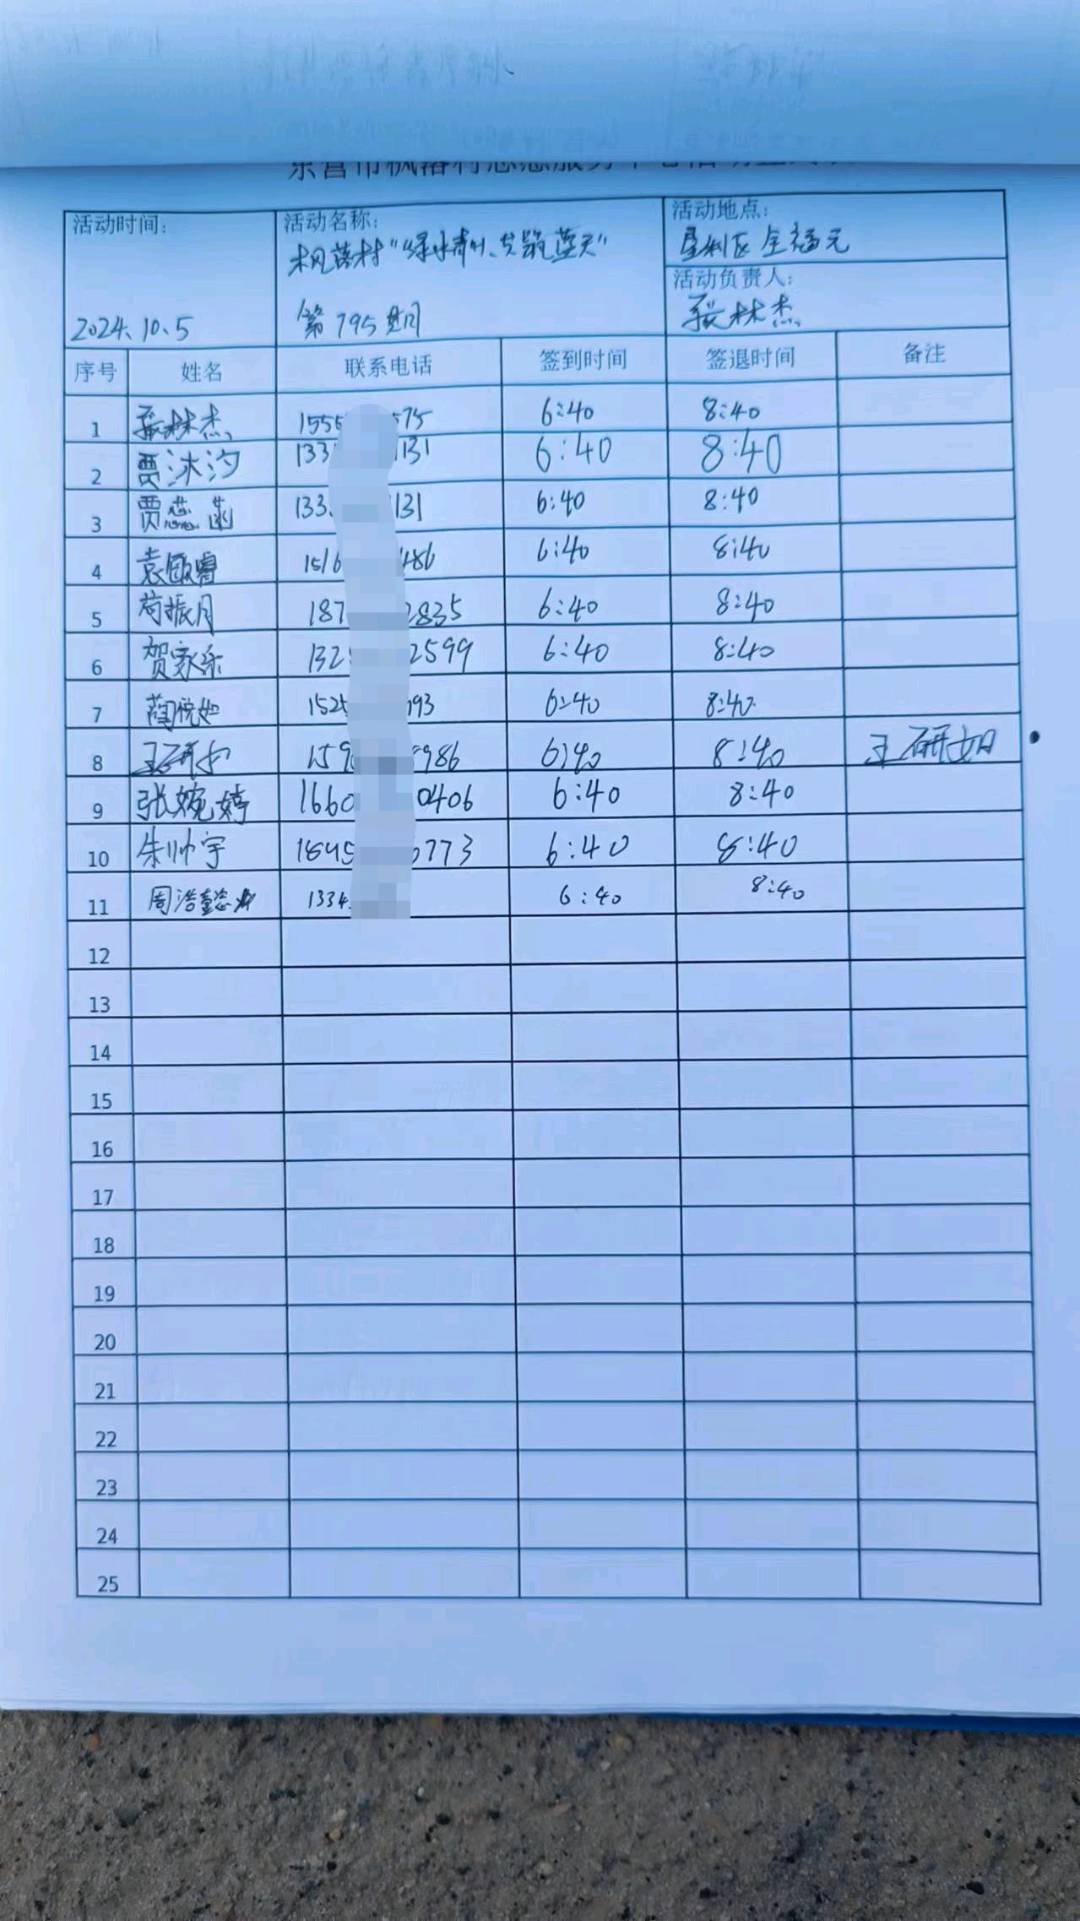 活动时间:
活动名称:
活动地点:
枫落村“绿水青山、共筑蓝天”
垦利区全福元
活动负责人:
2024.10.5
第795期
张林杰
序号 姓名 联系电话 签到时间 签退时间 备注
1 张林杰 1555 575 6:40 8:40
2 贾沐汐 133 131 6:40 8:40
3 贾蕊菡 133 131 6:40 8:40
4 袁敏睿 1516 486 6:40 8:40
5 苟振月 187 2835 6:40 8:40
6 贺家乐 132 2599 6:40 8:40
7 悦如 1525 093 6:40 8:40
8 王研如 159 986 6:40 8:40 王研如
9 张婉婷 1660 0406 6:40 8:40
10 朱帅宇 1845 773 6:40 8:40
11 周浩懿 1334 6:40 8:40
12
13
14
15
16
17
18
19
20
21
22
23
24
25